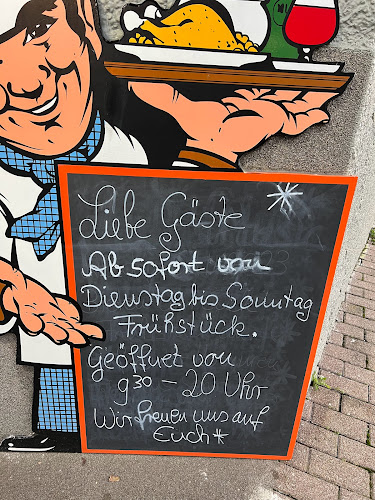 Liebe Gäste
Ab sofort von
Dienstag bis Sonntag
Frühstück.
Geöffnet von
9³⁰ - 20 Uhr
Wir freuen uns auf
Euch*